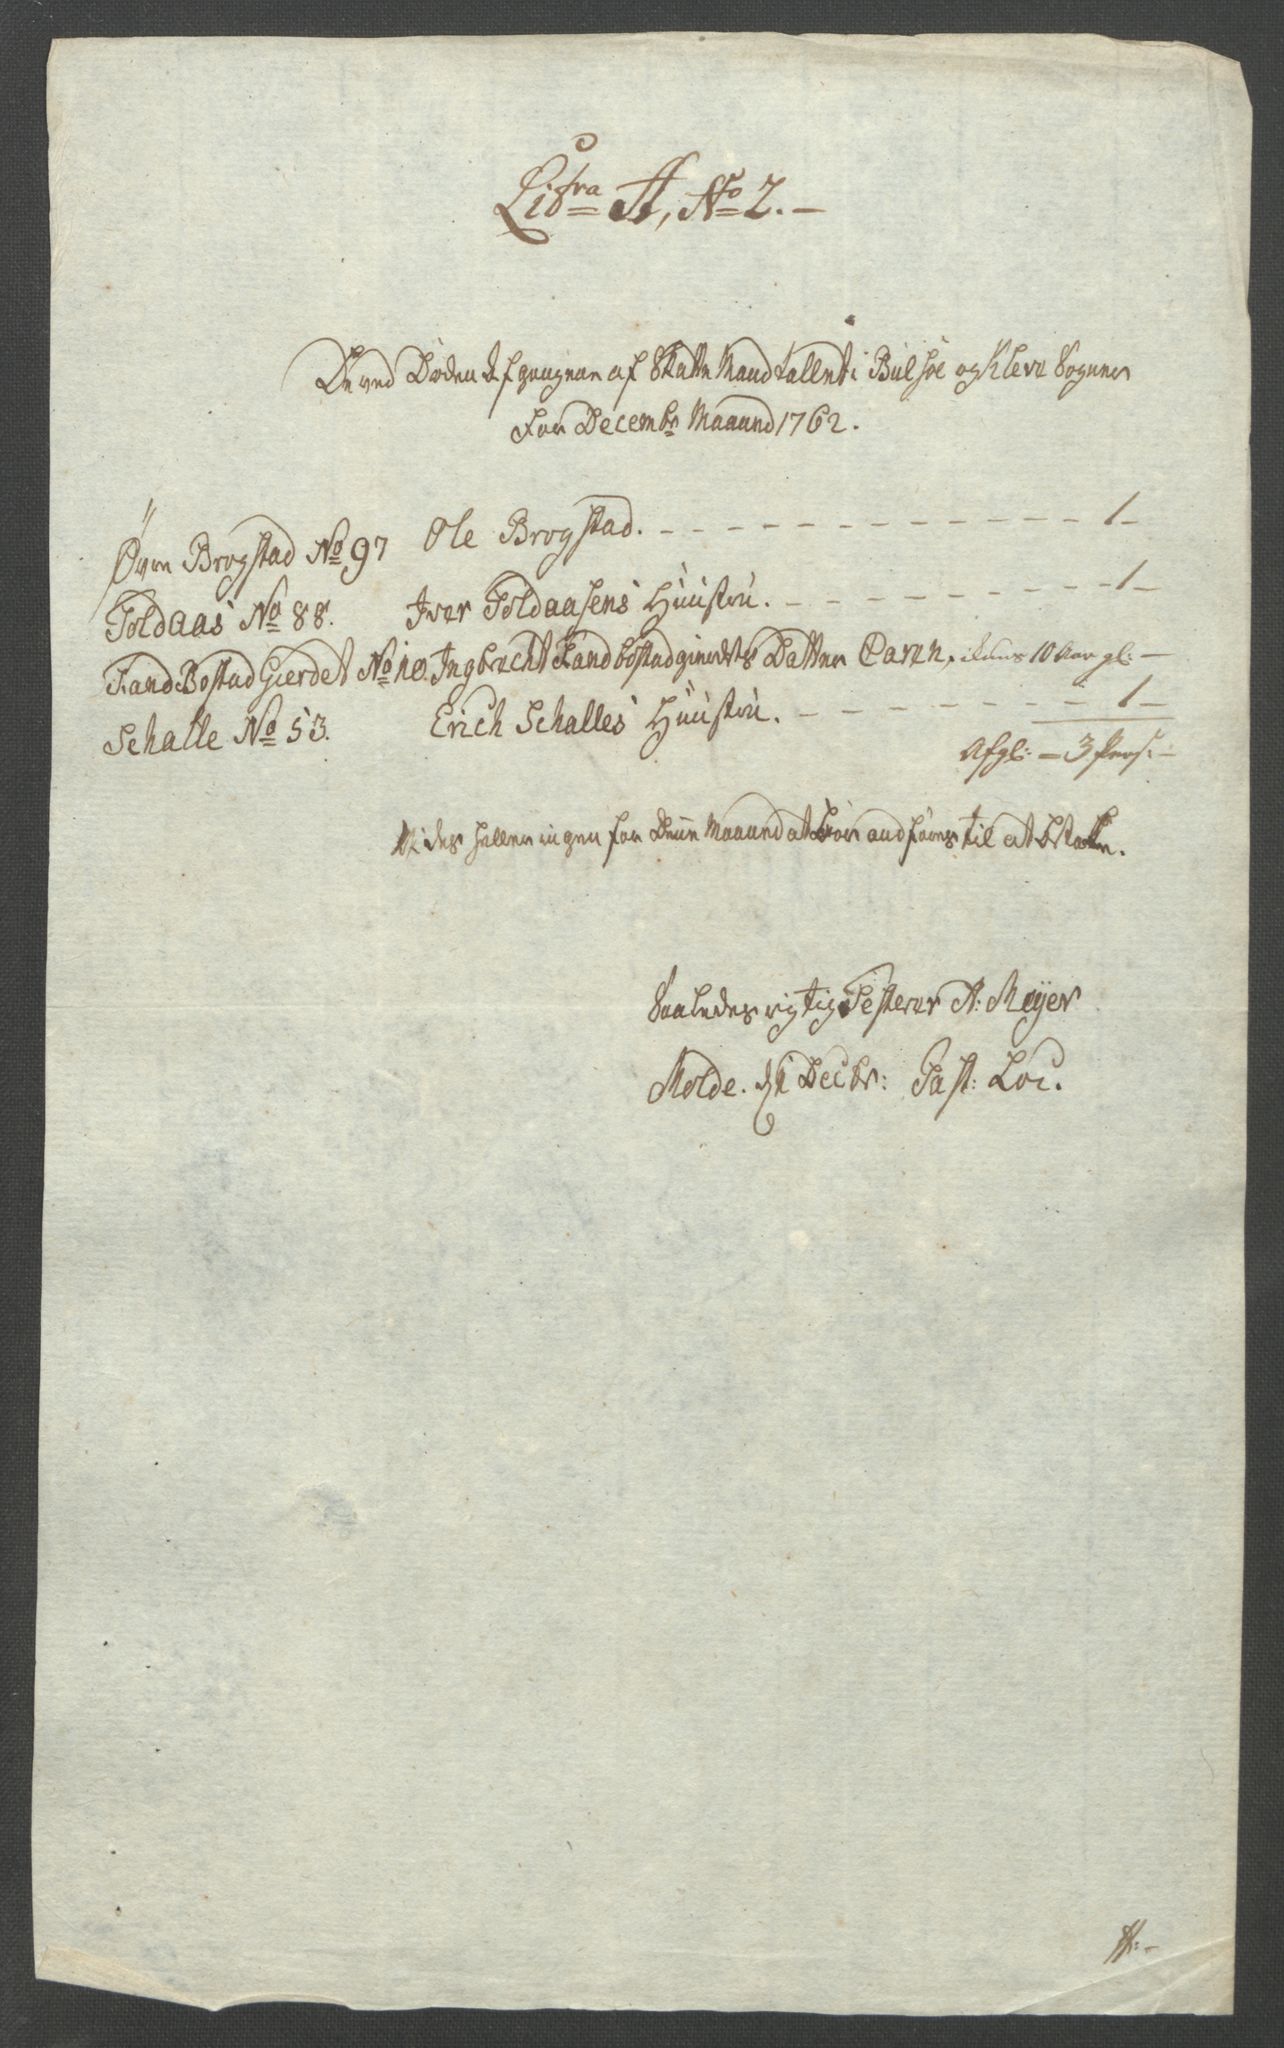 Litra A, No 2.
De ved Døden Afgangne af Skatte Mandtallet i Bolsøe og Kleve Sogner
for Decembr Maaned 1762.
Øvre Brogstad No 97 Ole Brogstad. 1
Foldaas No 88. Iver Foldaasens Hustru. 1
Fandbostad Gierdet No 110. Ingbrecht Fandbostadgierdets Datter Caren, 10 Aar gl:
Schalle No 53. Erich Schalles Hustru. 1
Afgl: 3 Pers:
Vides heller ingen for denne Maaned at anføres til at Skatte.
Saaledes rigtig Testerer A: Meÿer
Molde. Decbr: Past: Loc.